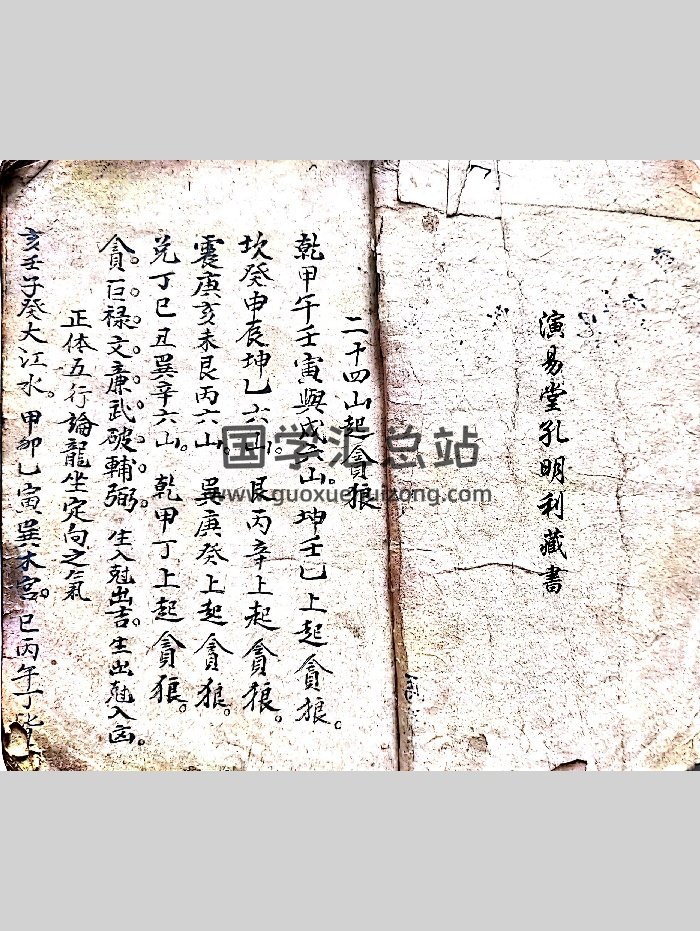 演易堂孔明利藏書
二十四山起貪狼
乾甲午壬寅與戌六山。坤壬乙上起貪狼。
坎癸申辰坤乙六山。艮丙辛上起貪狼。
震庚亥未艮丙六山。巽庚癸上起貪狼。
兌丁巳丑巽辛六山。乾甲丁上起貪狼。
貪。巨。祿。文。廉。武。破。輔。弼。生入尅出吉。生出尅入凶。
正体五行論龍坐定向之氣
亥壬子癸大江水。甲卯乙寅巽木宮。巳丙午丁皆
国学汇总站
www.guoxuehuizong.com